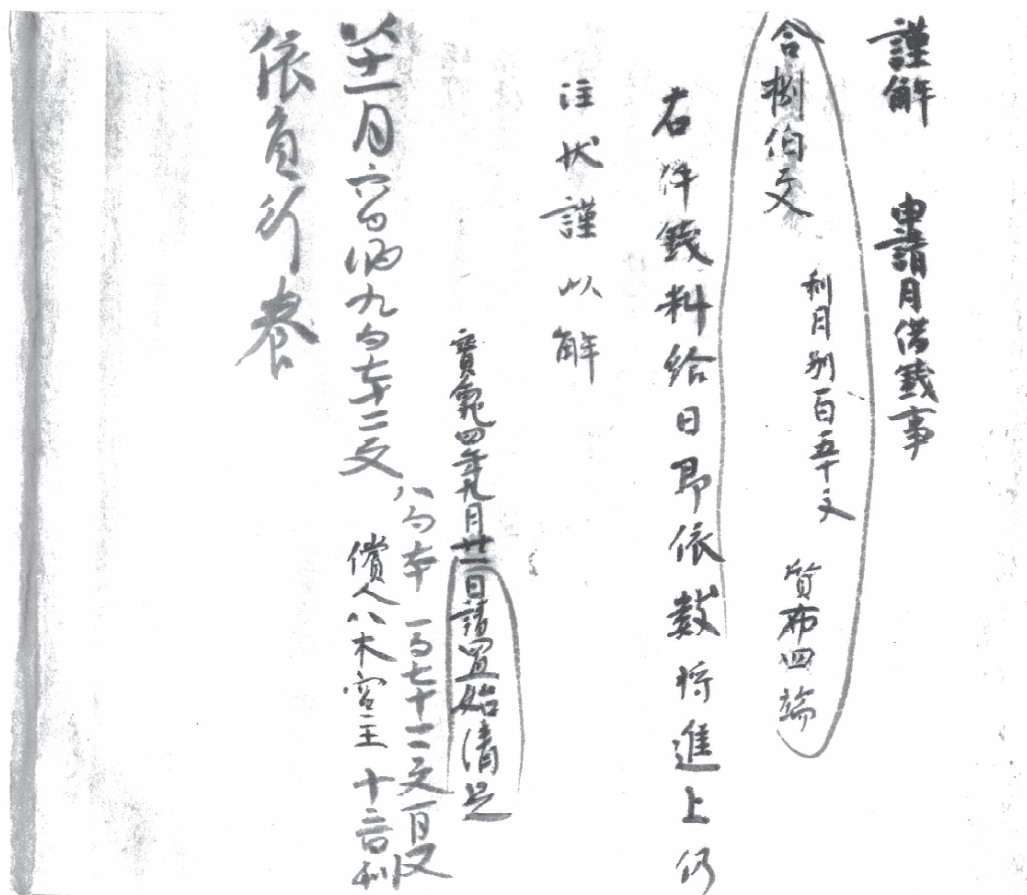 謹解 申請月借銭事
合捌伯文 利月別百五十文 質布四端
右件銭料給日即依数将進上仍
注状謹以解
寶亀四年九月廿一日請置始清足
以十一月六日納九百七十二文 八百本 一百七十二文一月又
償人八木宮主 十三日利
依員行 養